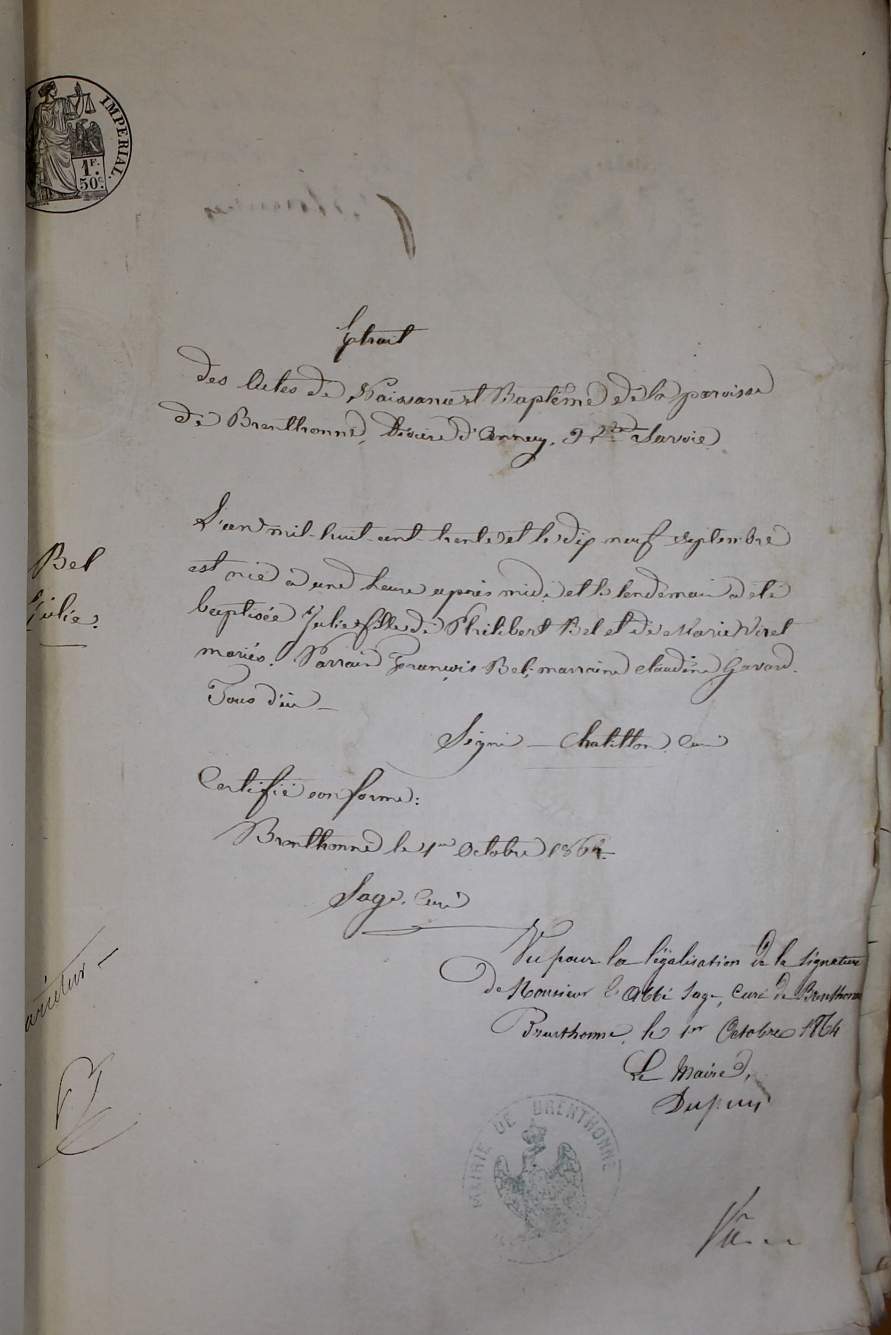 IMPERIAL.
1F.
50c.
Extrait
des Actes de Naissance et Baptême de la paroisse
de Brenthonne, Diocèse d'Annecy, Hte Savoie.
L'an mil-huit-cent-trente et le dix neuf septembre
est née à une heure après midi et le lendemain a été
baptisée Julie fille de Philibert Bel et de Marie Viret
mariés. Parrain François Bel, marraine Claudine Gavard.
Tous d'ici
Signé — Chatillon, Curé
Bel
Julie.
Certifié conforme:
Brenthonne le 1er Octobre 1864.
Sage, Curé
Vu pour la légalisation de la signature
de Monsieur l'Abbé Sage, Curé de Brenthonne
Brenthonne, le 1er Octobre 1864
Le Maire,
Dupuis
MAIRIE DE BRENTHONNE